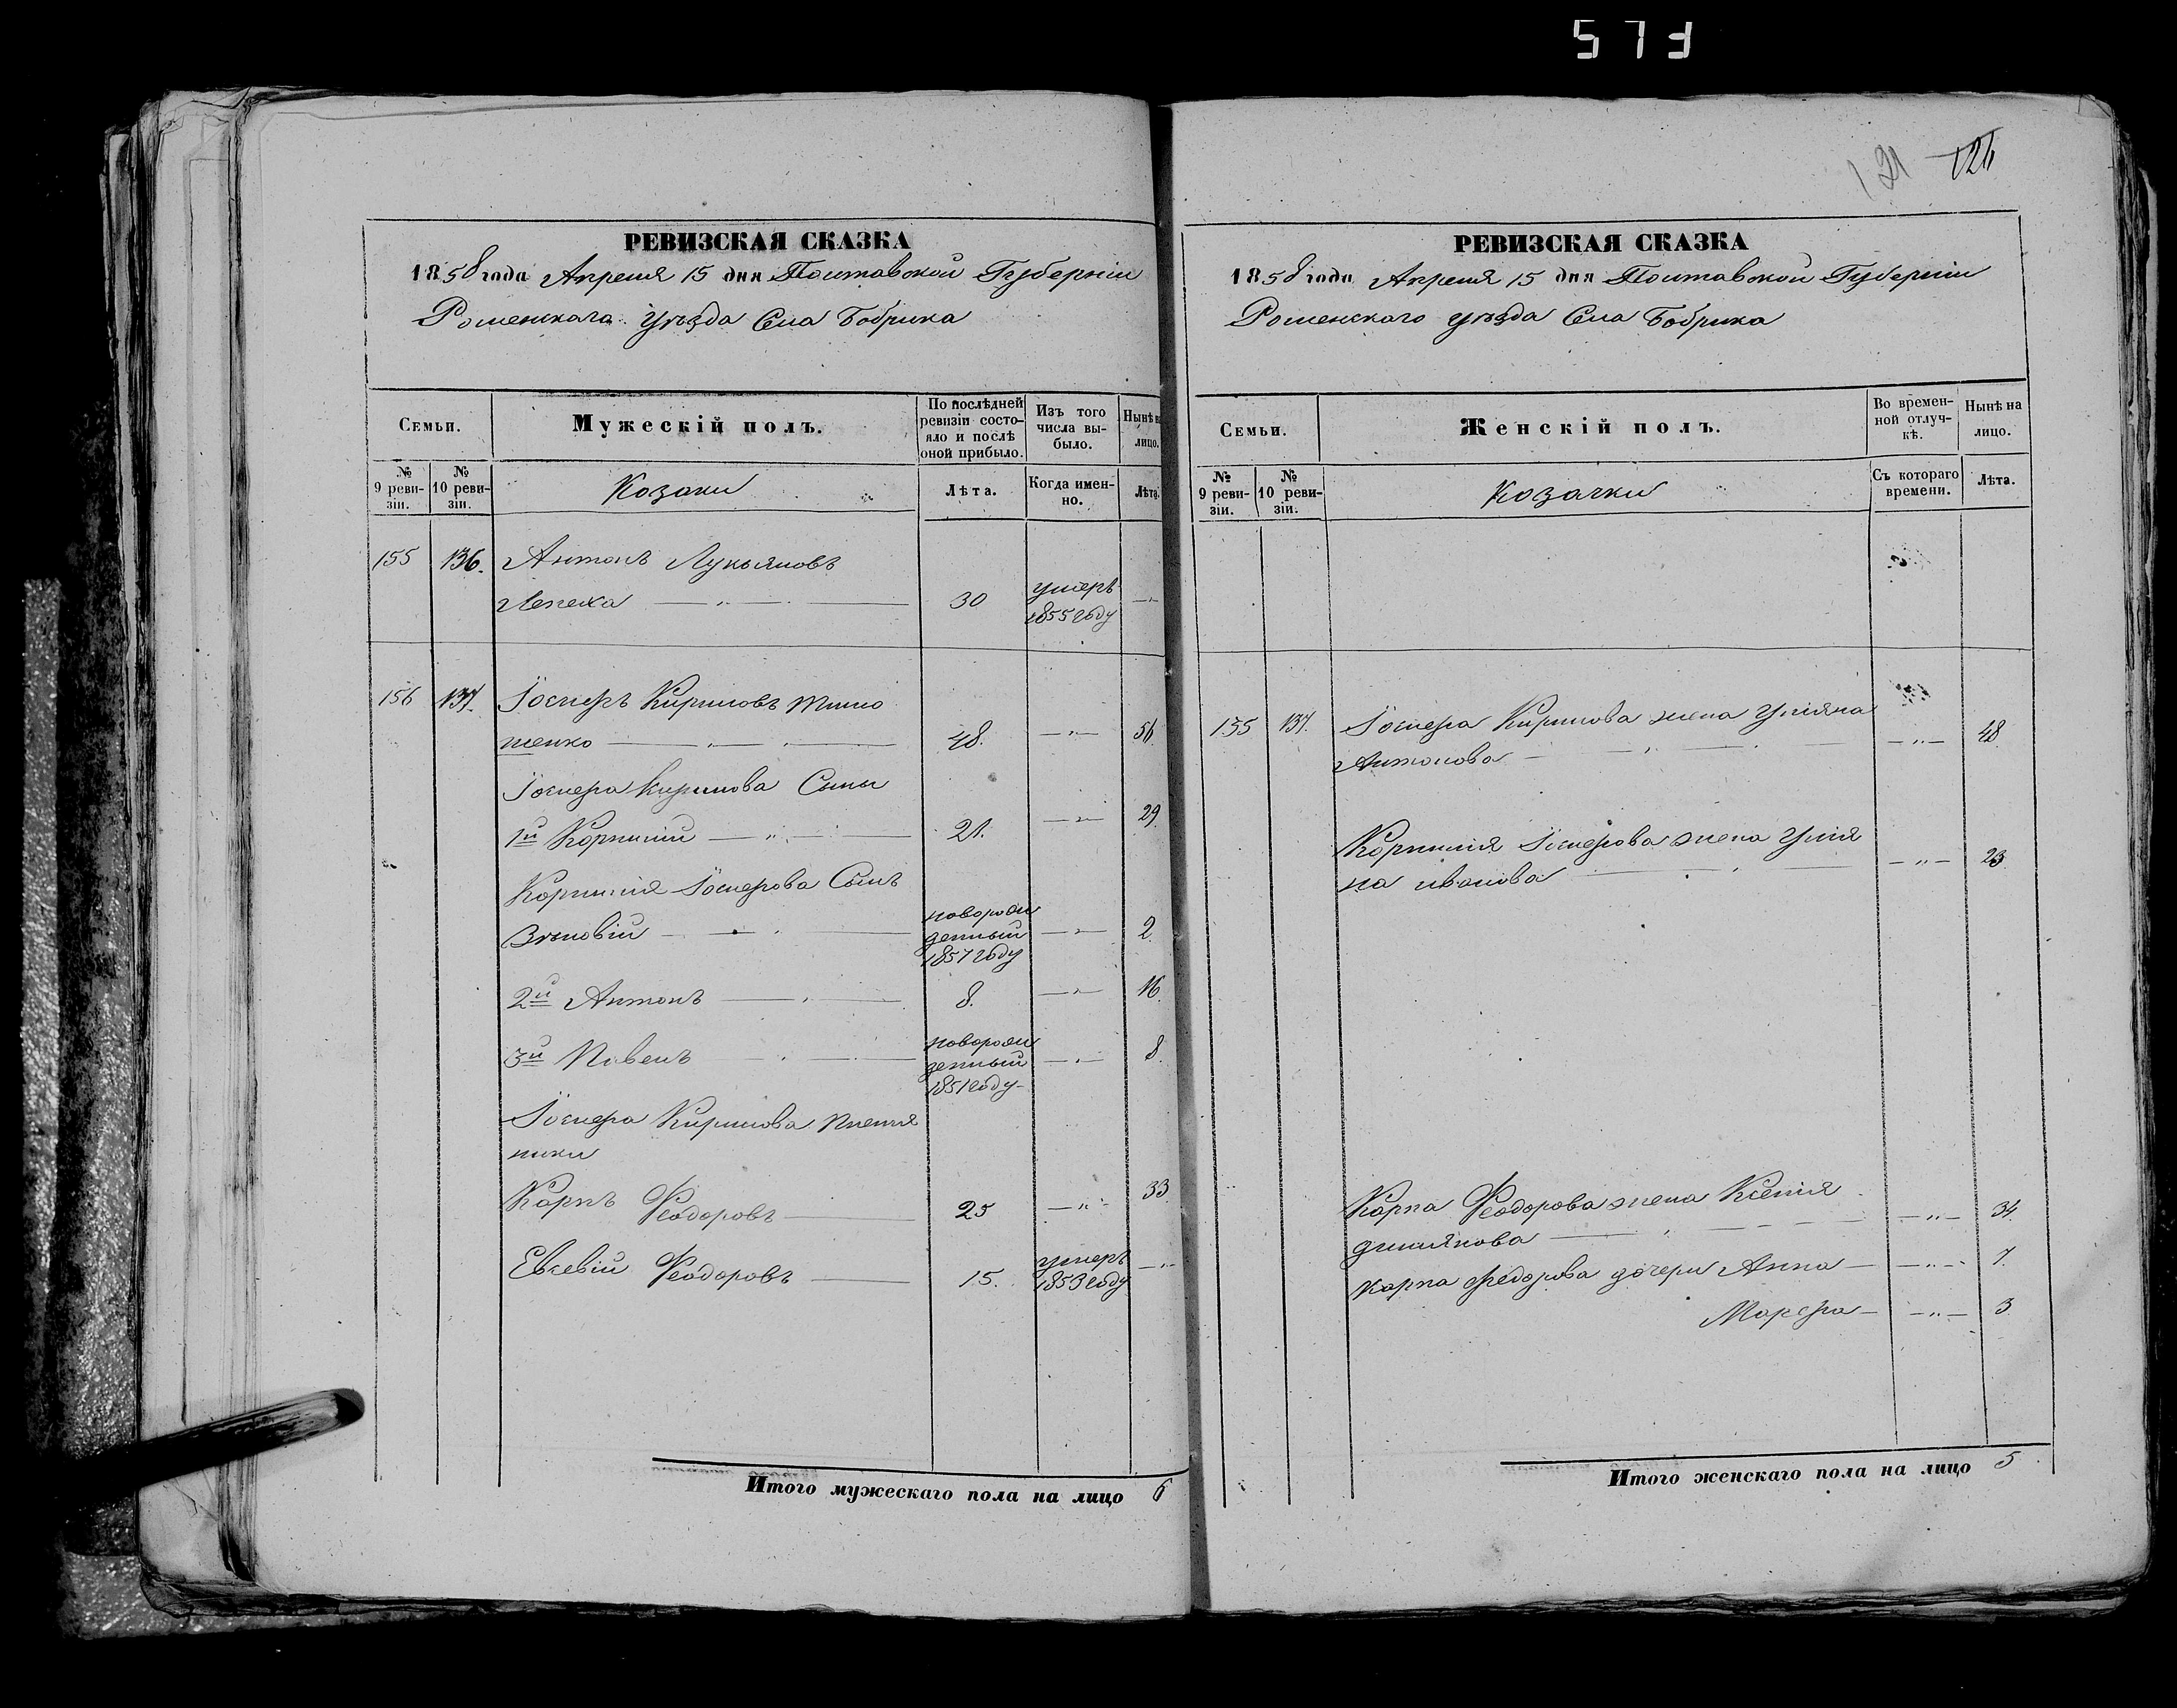 573
121 126
РЕВИЗСКАЯ СКАЗКА
1858 года Апреля 15 дня Полтавской Губернiи
Роменскаго Уѣзда Села Бобрика
Семьи.
Мужескiй полъ.
По послѣдней ревизiи состояло и послѣ оной прибыло.
Изъ того числа выбыло.
Нынѣ на лицо.
№ 9 ревизiи.
№ 10 ревизiи.
Козаки
Лѣта.
Когда именно.
Лѣта.
155 136. Антонъ Лукьяновъ
Лепеха 30 умеръ 1855 году
156 137. Кириловъ Тимо
шенко 48. 56
Кирилова Сыны
1й Корнилiй 21. 29
Корнилiя Сынъ
Зѣновiй новорожденный 1857 году 2
2й Антонъ 8. 16.
3й Павелъ новорожденный 1851 году 8.
Кирилова племя
ники
Карпъ Феодоровъ 25 33
Евсевiй Феодоровъ 15. умеръ 1853 году
Итого мужескаго пола на лицо 6
РЕВИЗСКАЯ СКАЗКА
1858 года Апреля 15 дня Полтавской Губернiи
Роменскаго уѣзда Села Бобрика
Семьи.
Женскiй полъ.
Во временной отлучкѣ.
Нынѣ на лицо.
№ 9 ревизiи.
№ 10 ревизiи.
Козачки
Съ котораго времени.
Лѣта.
155 137. Кирилова жена Улiяна
Антонова 48
Корнилiя жена Улiя
на иванова 23
Карпа Феодорова жена Ксенiя
34.
карпа Федорова дочери Анна 7.
Марфа 3
Итого женскаго пола на лицо 5